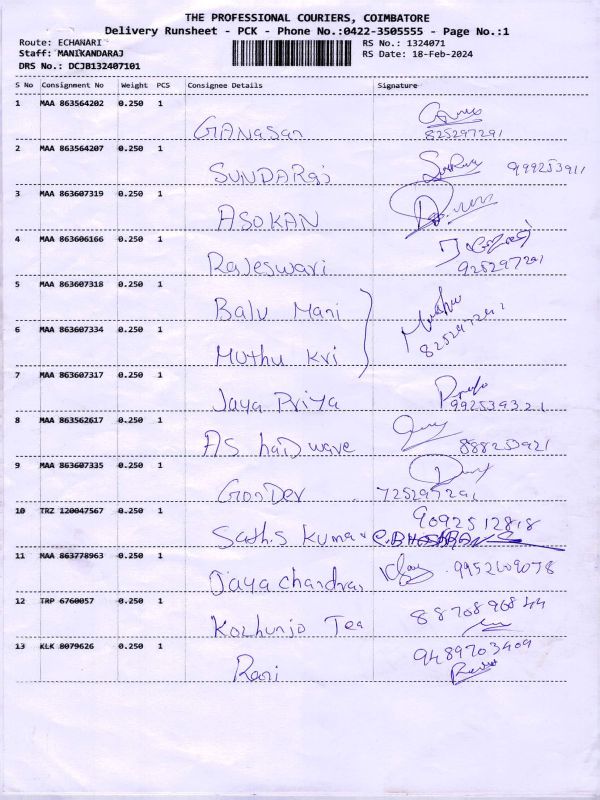 THE PROFESSIONAL COURIERS, COIMBATORE
Delivery Runsheet - PCK - Phone No.:0422-3505555 - Page No.:1
Route: ECHANARI RS No.: 1324071
Staff: MANIKANDARAJ RS Date: 18-Feb-2024
DRS No.: DCJB132407101
S No Consignment No Weight PCS Consignee Details Signature
1 MAA 863564202 0.250 1
GANASAN 825297291
2 MAA 863564207 0.250 1
SUNDARaj 999253911
3 MAA 863607319 0.250 1
ASOKAN
4 MAA 863606166 0.250 1
Rajeswari 925297291
5 MAA 863607318 0.250 1
Balu Mani
6 MAA 863607334 0.250 1 825297292
Muthu Kri
7 MAA 863607317 0.250 1
Jaya Priya 992539321
8 MAA 863562617 0.250 1
AS haidware 888253921
9 MAA 863607335 0.250 1
725297291
10 TRZ 120047567 0.250 1 9092512818
Sathis Kumar
11 MAA 863778963 0.250 1
Jayachandran 9952609078
12 TRP 6760057 0.250 1 8870896844
Kozhunjo Tea
13 KLK 8079626 0.250 1 9489703409
Rani